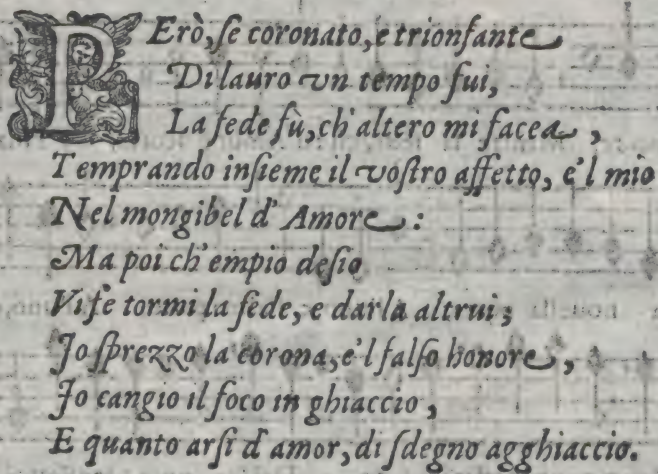 Però, se coronato, e trionfante
Di lauro vn tempo fui,
La fede fù, ch'altero mi facea,
Temprando insieme il vostro affetto, e'l mio
Nel mongibel d'Amore:
Ma poi ch'empio desio
Vi fe tormi la fede, e darla altrui;
Io sprezzo la corona, e'l falso honore,
Io cangio il foco in ghiaccio,
E quanto arsi d'amor, di sdegno agghiaccio.